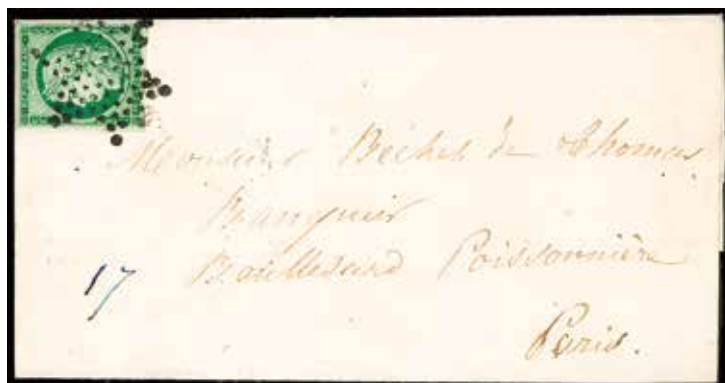 Monsieur Béchet de Thomas
Banquier
Boullevard Poissonnière
17
Paris.